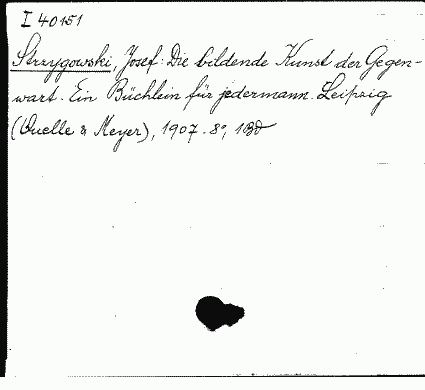 I 40151
Strzygowski, Josef: Die bildende Kunst der Gegen-
wart. Ein Büchlein für jedermann. Leipzig
(Quelle & Meyer), 1907. 8°, 1 Bd